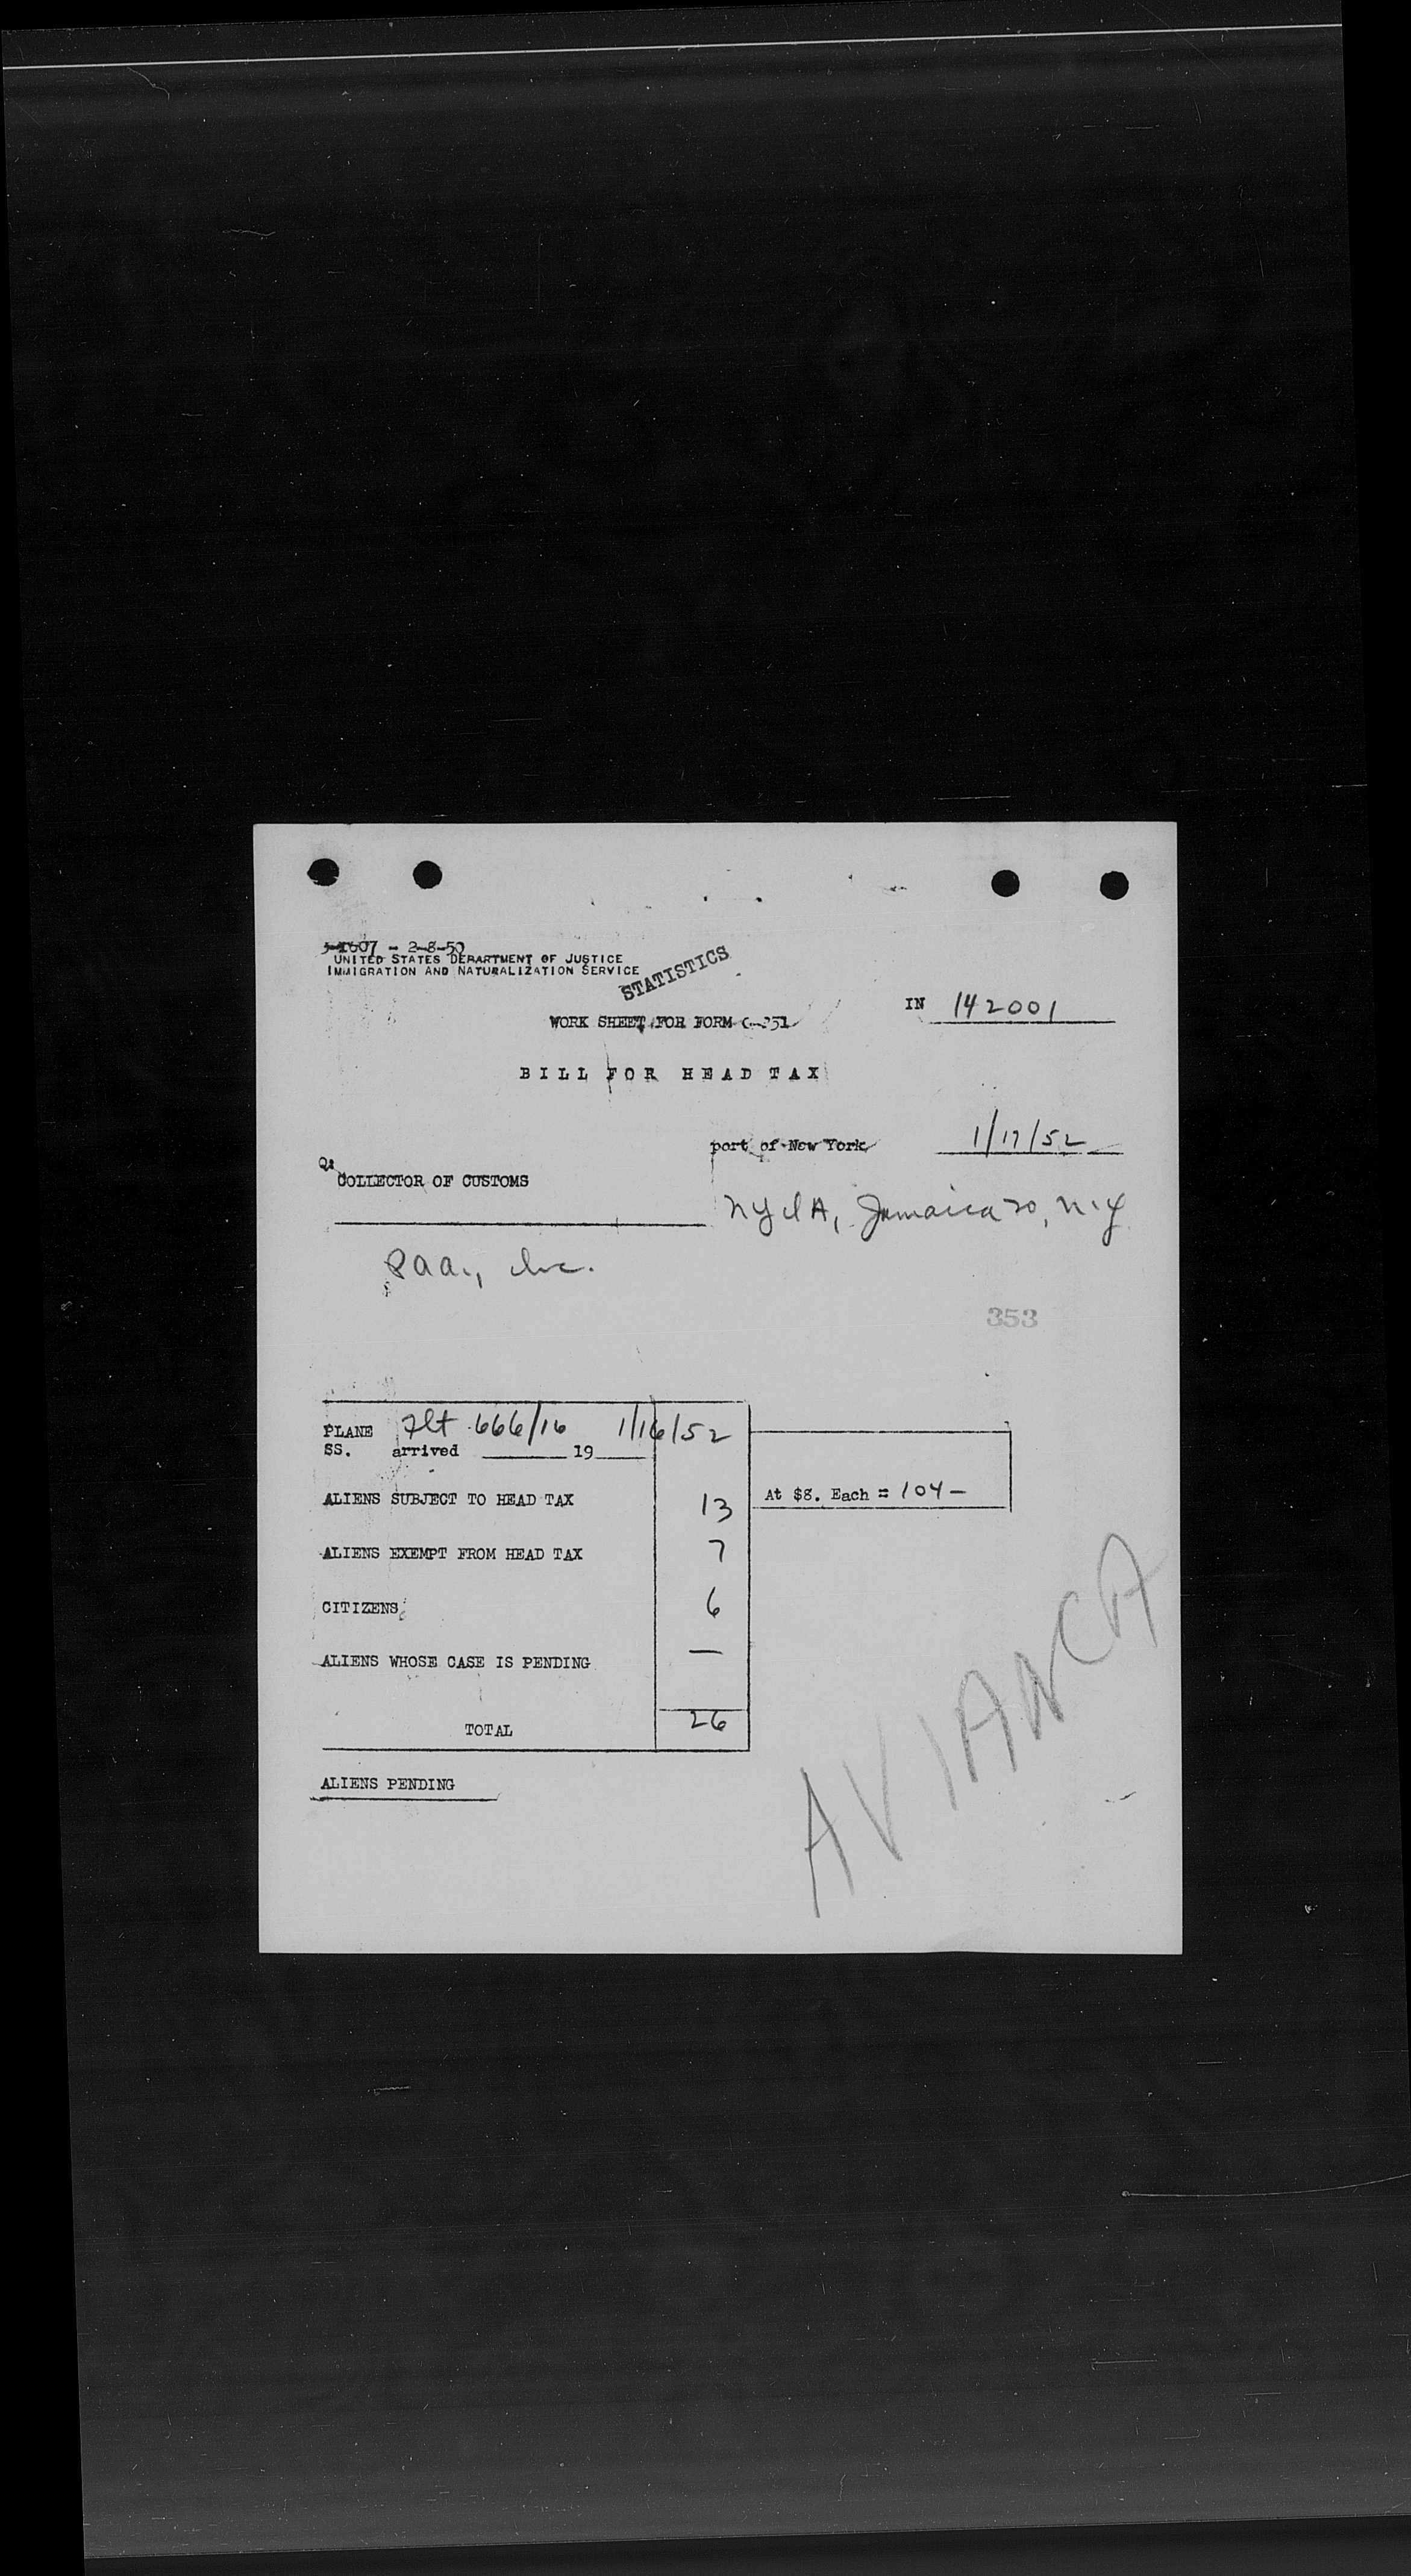 3-1607 - 2-8-50
UNITED STATES DEPARTMENT OF JUSTICE
IMMIGRATION AND NATURALIZATION SERVICE
STATISTICS
IN 142001
WORK SHEET FOR FORM C-351
BILL FOR HEAD TAX
port of New York 1/17/52
COLLECTOR OF CUSTOMS
NYIA, Jamaica 30, N.Y
PAA., Inc.
353
PLANE Flt 666/16 1/16/52
SS. arrived 19
ALIENS SUBJECT TO HEAD TAX 13 At $8. Each = 104-
ALIENS EXEMPT FROM HEAD TAX 7
CITIZENS 6
ALIENS WHOSE CASE IS PENDING —
TOTAL 26
ALIENS PENDING
AVIANCA